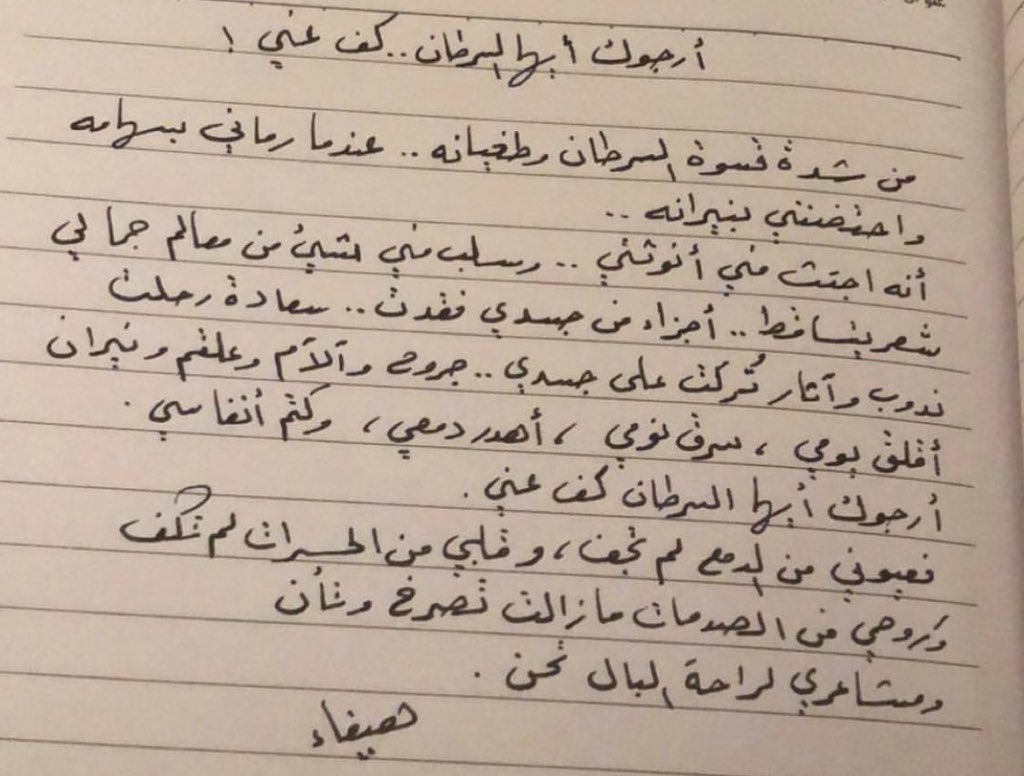 أرجوك أيها السرطان.. كف عني !
من شدة قسوة السرطان وطغيانه .. عندما رماني بسهامه
واحتضنتني بنيرانه ..
أنه اجتث مني أنوثتي .. وسلب مني شيئ من معالم جمالي
شعر يتساقط .. أجزاء من جسدي فقدت .. سعادة رحلت
ندوب وآثار تُركت على جسدي .. جروح وآلآم وعلقم ونيران
أقلق يومي ، سرق نومي ، أهدر دمعي ، وكتم أنفاسي .
أرجوك أيها السرطان كف عني .
فعيوني من الدمع لم تجف ، وقلبي من الحسرات لم تكف
وروحي من الصدمات مازالت تصرخ وتأن
ومشاعري لراحة البال تحن .
هيفاء